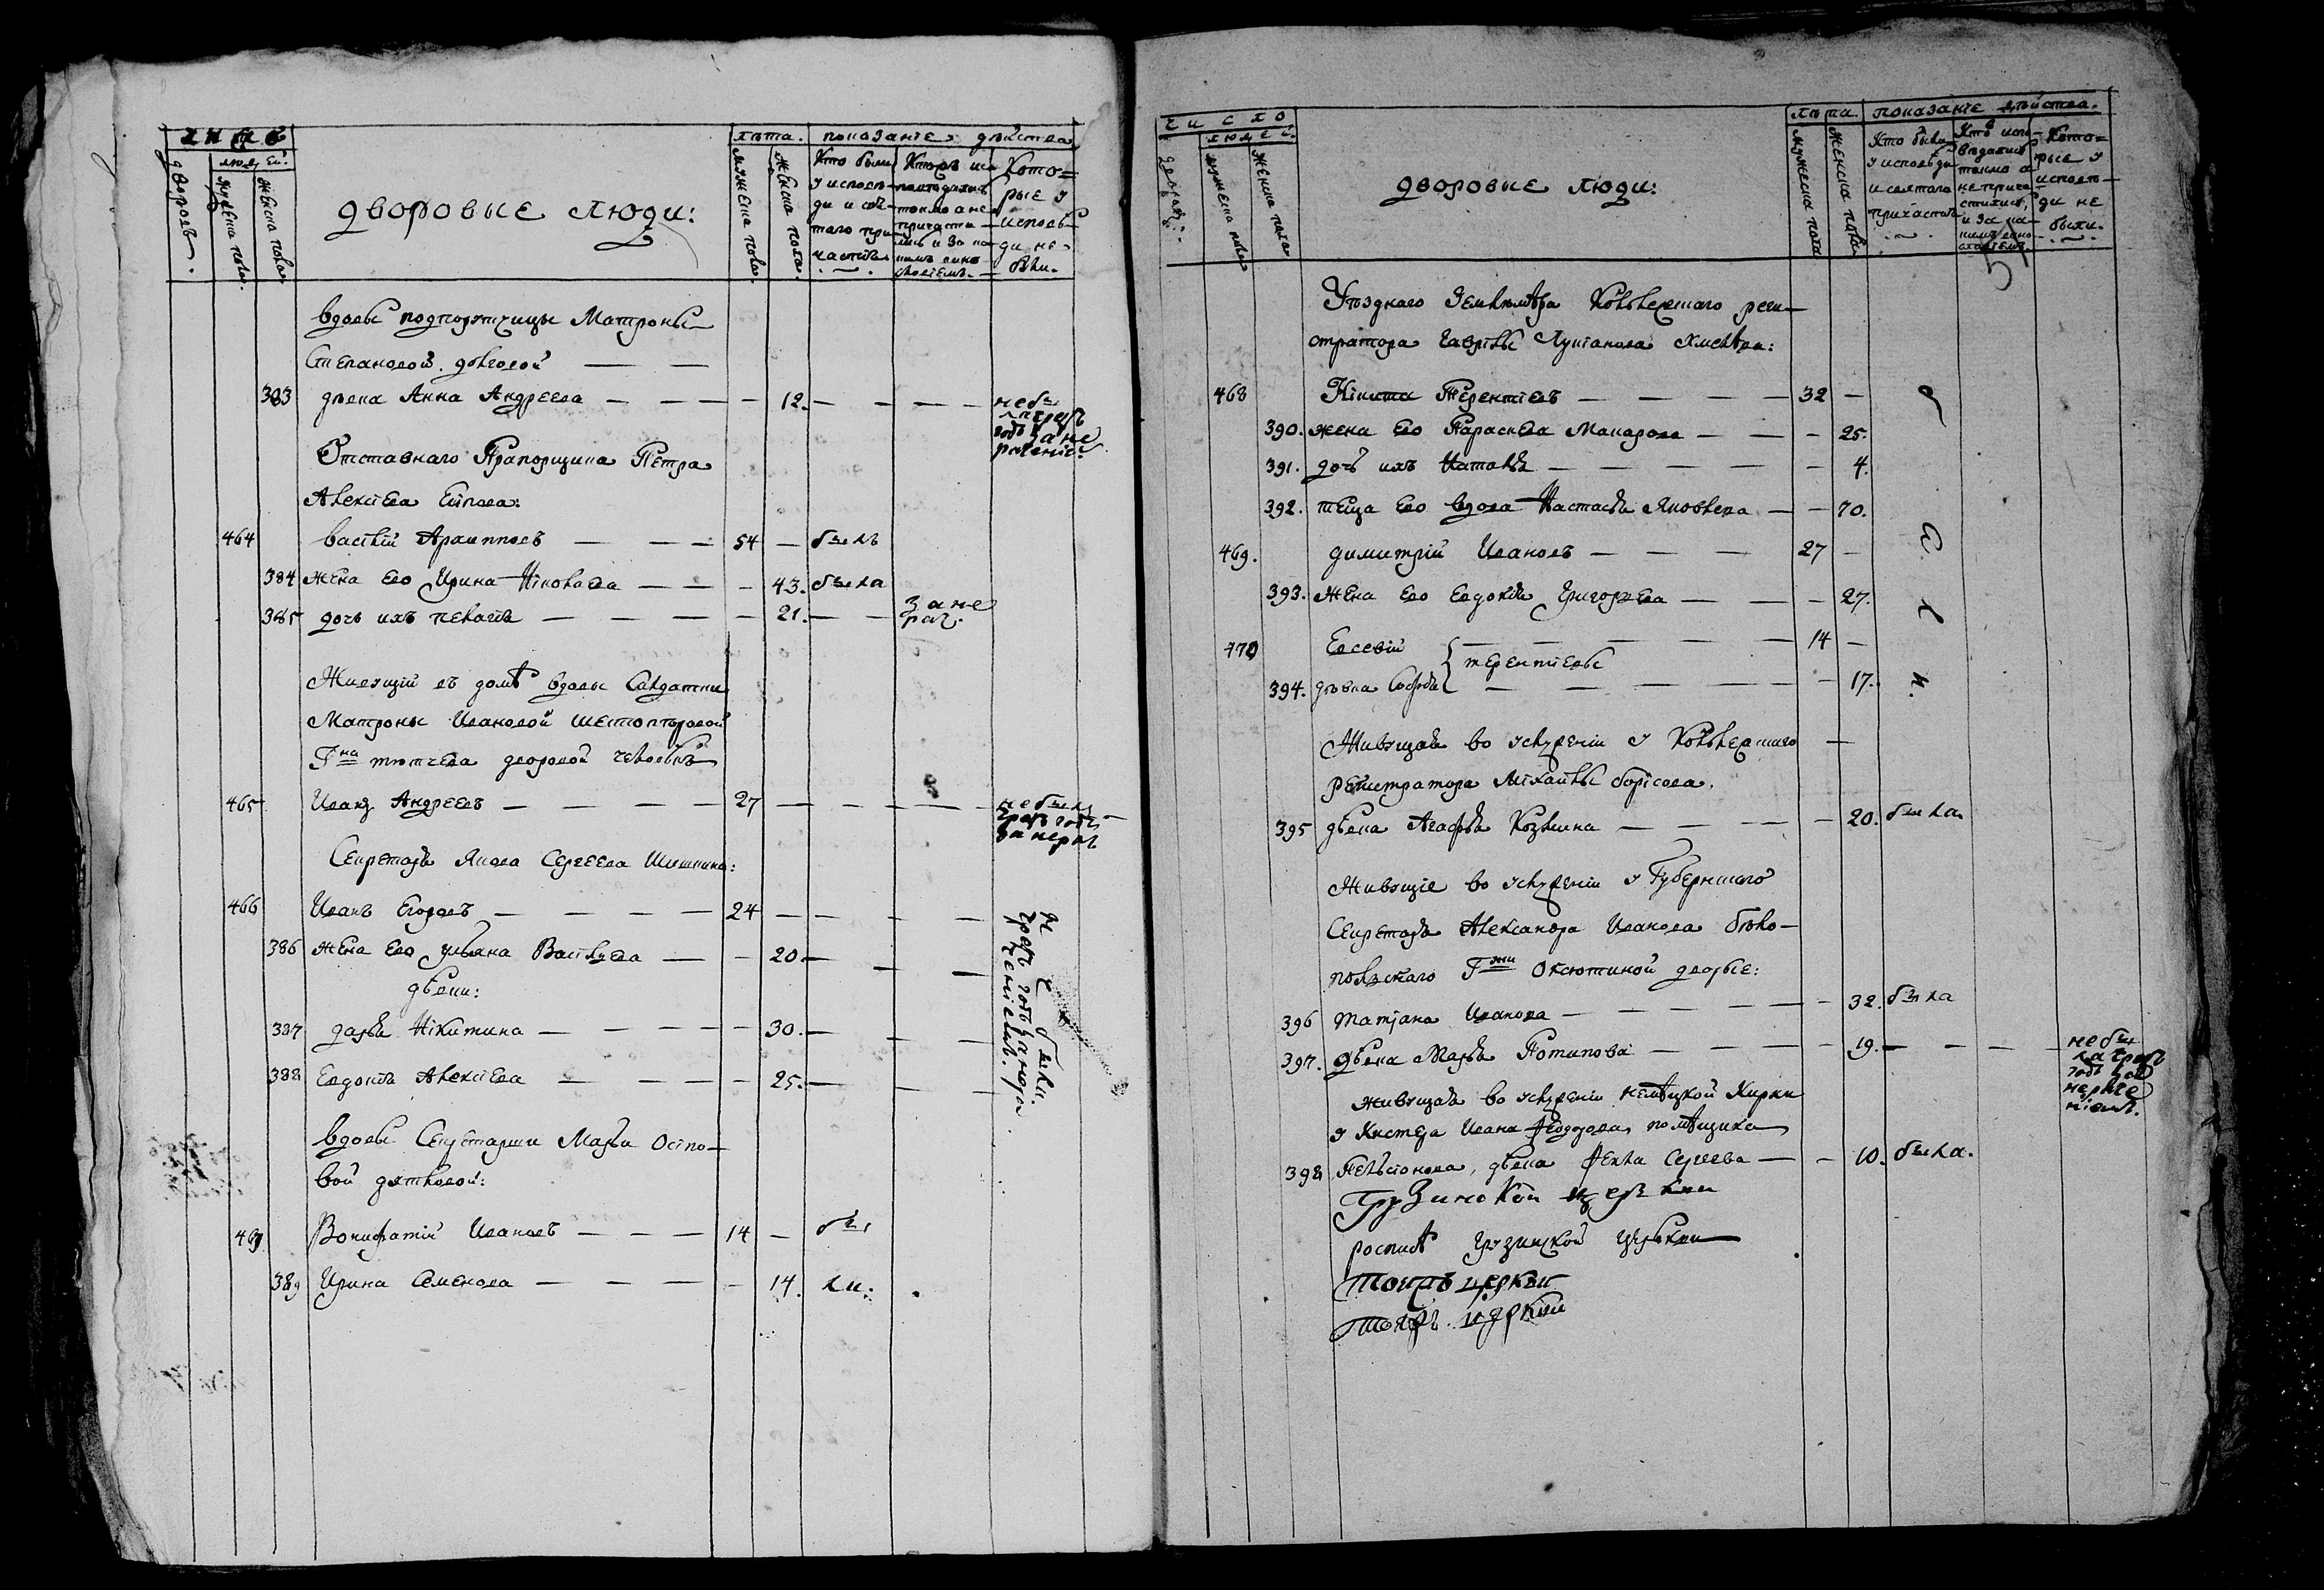 число
людей.
дворовъ.
мужеска пола.
женска пола
дворовые люди:
лѣта.
мужеска пола
женска пола.
показание действа
Кто были у исповеди и святаго причастия
Кто исповедались токмо а не причастились и за каким винословіем.
Которые у исповеди не были.
вдовы подпорутчицы Матроны
Степановой
383 девка Анна Андреева — — — 12. — — — не была чрезъ годъ за нерачением.
Отставнаго Прапорщика Петра
Алексеева
464 василій Архиповъ — — — 54 — былъ
384 жена ево Ирина Николаева — — — 43. была
385 дочь ихъ пелагѣя — — — — 21. — — за нерач.
Живущій въ домѣ вдовы Салдатки
Матроны Ивановой
Гна тютчева дворовой человѣкъ
465 Иванъ Андреевъ — — — — 27 — — — — не былъ чрезъ годъ за нерач
Секретаря Якова Сергеева Шишкина:
466 Иванъ Егоровъ — — — — 24 — — — —
386 жена ево ульяна Васильева — — 20. — — —
девки:
387 дарья Никитина — — — — — 30. — — —
388 Евдокія Алексеева — — — — 25. — — —
не были чрезъ годъ за нерачениемъ.
вдовы Секретарши Марьи Осипо—
вой дятловой:
467 Вонифатій Ивановъ — — — 14 — бы
389 Ирина Семенова — — — — 14. ли.
число
людей.
дворовъ.
мужеска пола
женска пола
дворовые люди:
лѣта.
мужеска пола
женска пола
показание действа.
Кто были у исповеди и святаго причастія
Кто исповедались токмо а не причастились, и за каким винословіемъ.
Которые у исповеди не были.
Уезднаго Землемѣра Коллежскаго реги—
стратора Гаврилы
468 Никита Терентьевъ — — — — 32 —
390. жена ево Парасковья Макарова — — — 25.
391. дочь ихъ Наталья — — — — — 4.
392. теща ево вдова Настасья Яковлева — — 70.
469. димитрій Ивановъ — — — 27 —
393. жена ево Евдокія Григорьева — — — 27.
470 Евсевій — — — — — 14 —
терентьевы
394. девка Софья — — — — — 17.
были.
Живущая во услуженіи у Коллежскаго —
регистратора Михаилы борисова.
395 девка Агафья Козмина — — — — 20. была
Живущіе во услуженіи у Губернскаго
Секретаря Александра Иванова бело—
польскаго Гжи Оксютиной дворовые:
396 татьяна Иванова — — — — — 32. была
397. девка Марья Потапова — — — — 19. — — — не была чрезъ годъ за нерачениемъ.
живущая во услуженіи немецкой Кирки
у Кистера Ивана Феодорова помѣщика
398 девка Фекла Сергеева — — 10. была.
Грузинской церкви
роспись грузинской церкви
тояжъ церкви
тояжъ церкви